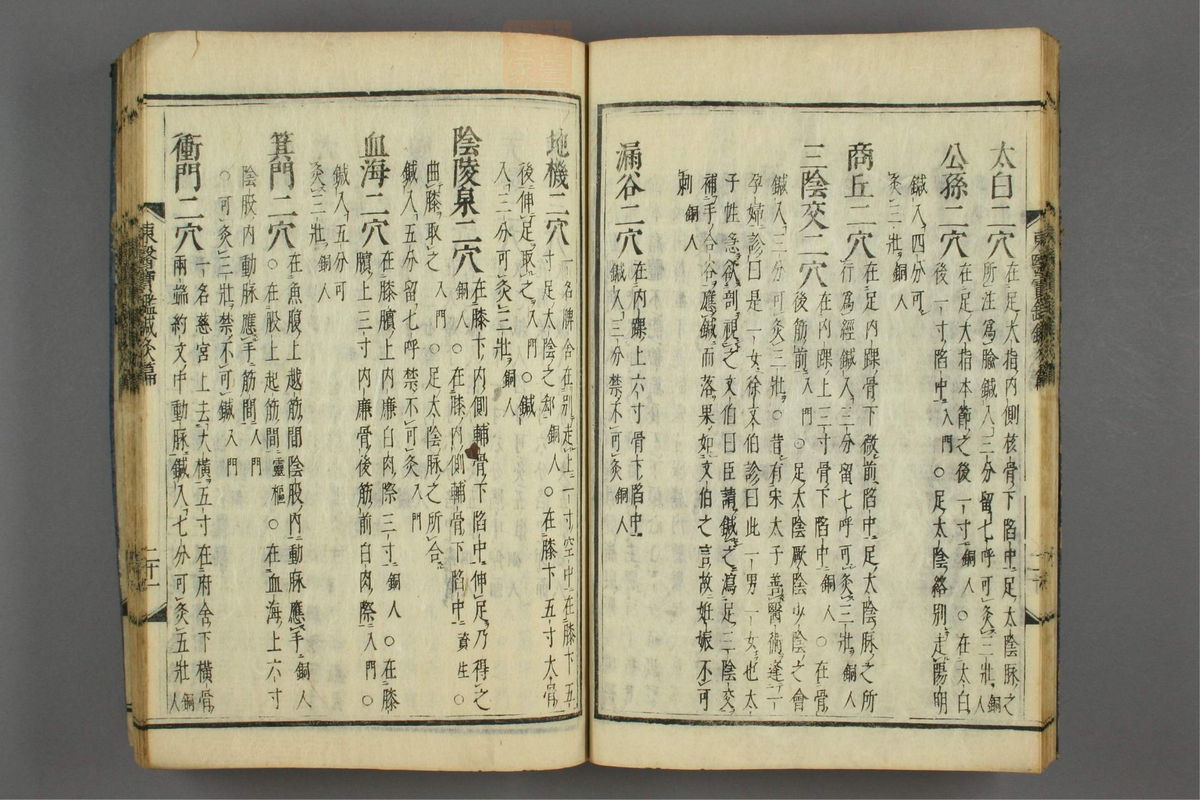 太白二穴 在足大指內側核骨下陷中足太陰脉之
所注爲腧鍼入三分留七呼可灸三壯銅人
公孫二穴 在足大指本節之後一寸銅人○在太白
後一寸陷中入門○足太陰絡別走陽明
鍼入四分可
灸三壯銅人
商丘二穴 在足內踝骨下微前陷中足太陰脉之所
行爲經鍼入三分留七呼可灸三壯銅人
三陰交二穴 在內踝上三寸骨下陷中銅人○在骨
後筋前入門○足太陰厥陰少陰之會
鍼入三分可灸三壯○昔有宋太子善醫術逢一
孕婦診曰是一女徐文伯診曰此一男一女也太
子性急欲剖視之文伯曰臣請鍼之瀉足三陰交
補手合谷應鍼而落果如文伯之言故妊娠不可
刺銅人
漏谷二穴 在內踝上六寸骨下陷中
鍼入三分禁不可灸銅人
地機二穴 一名脾舍在別走上一寸空中在膝下五
寸足太陰之郄銅人○在膝下五寸大骨
後伸足取之入門○鍼
入三分可灸三壯銅人
陰陵泉二穴 在膝下內側輔骨下陷中伸足乃得之
銅人○在膝內側輔骨下陷中資生○
曲膝取之入門○足太陰脉之所合
鍼入五分留七呼禁不可灸入門
血海二穴 在膝臏上內廉白肉際三寸銅人○在膝
臏上三寸內廉骨後筋前白肉際入門○
鍼入五分可
灸三壯銅人
箕門二穴 在魚腹上越筋間陰股內動脉應手銅人
○在股上起筋間靈樞○在血海上六寸
陰股內動脉應手筋間入門
○可灸三壯禁不可鍼入門
衝門二穴 一名慈宮上去大橫五寸在府舍下橫骨
兩端約文中動脉鍼入七分可灸五壯銅人
東醫寶鑑鍼灸篇